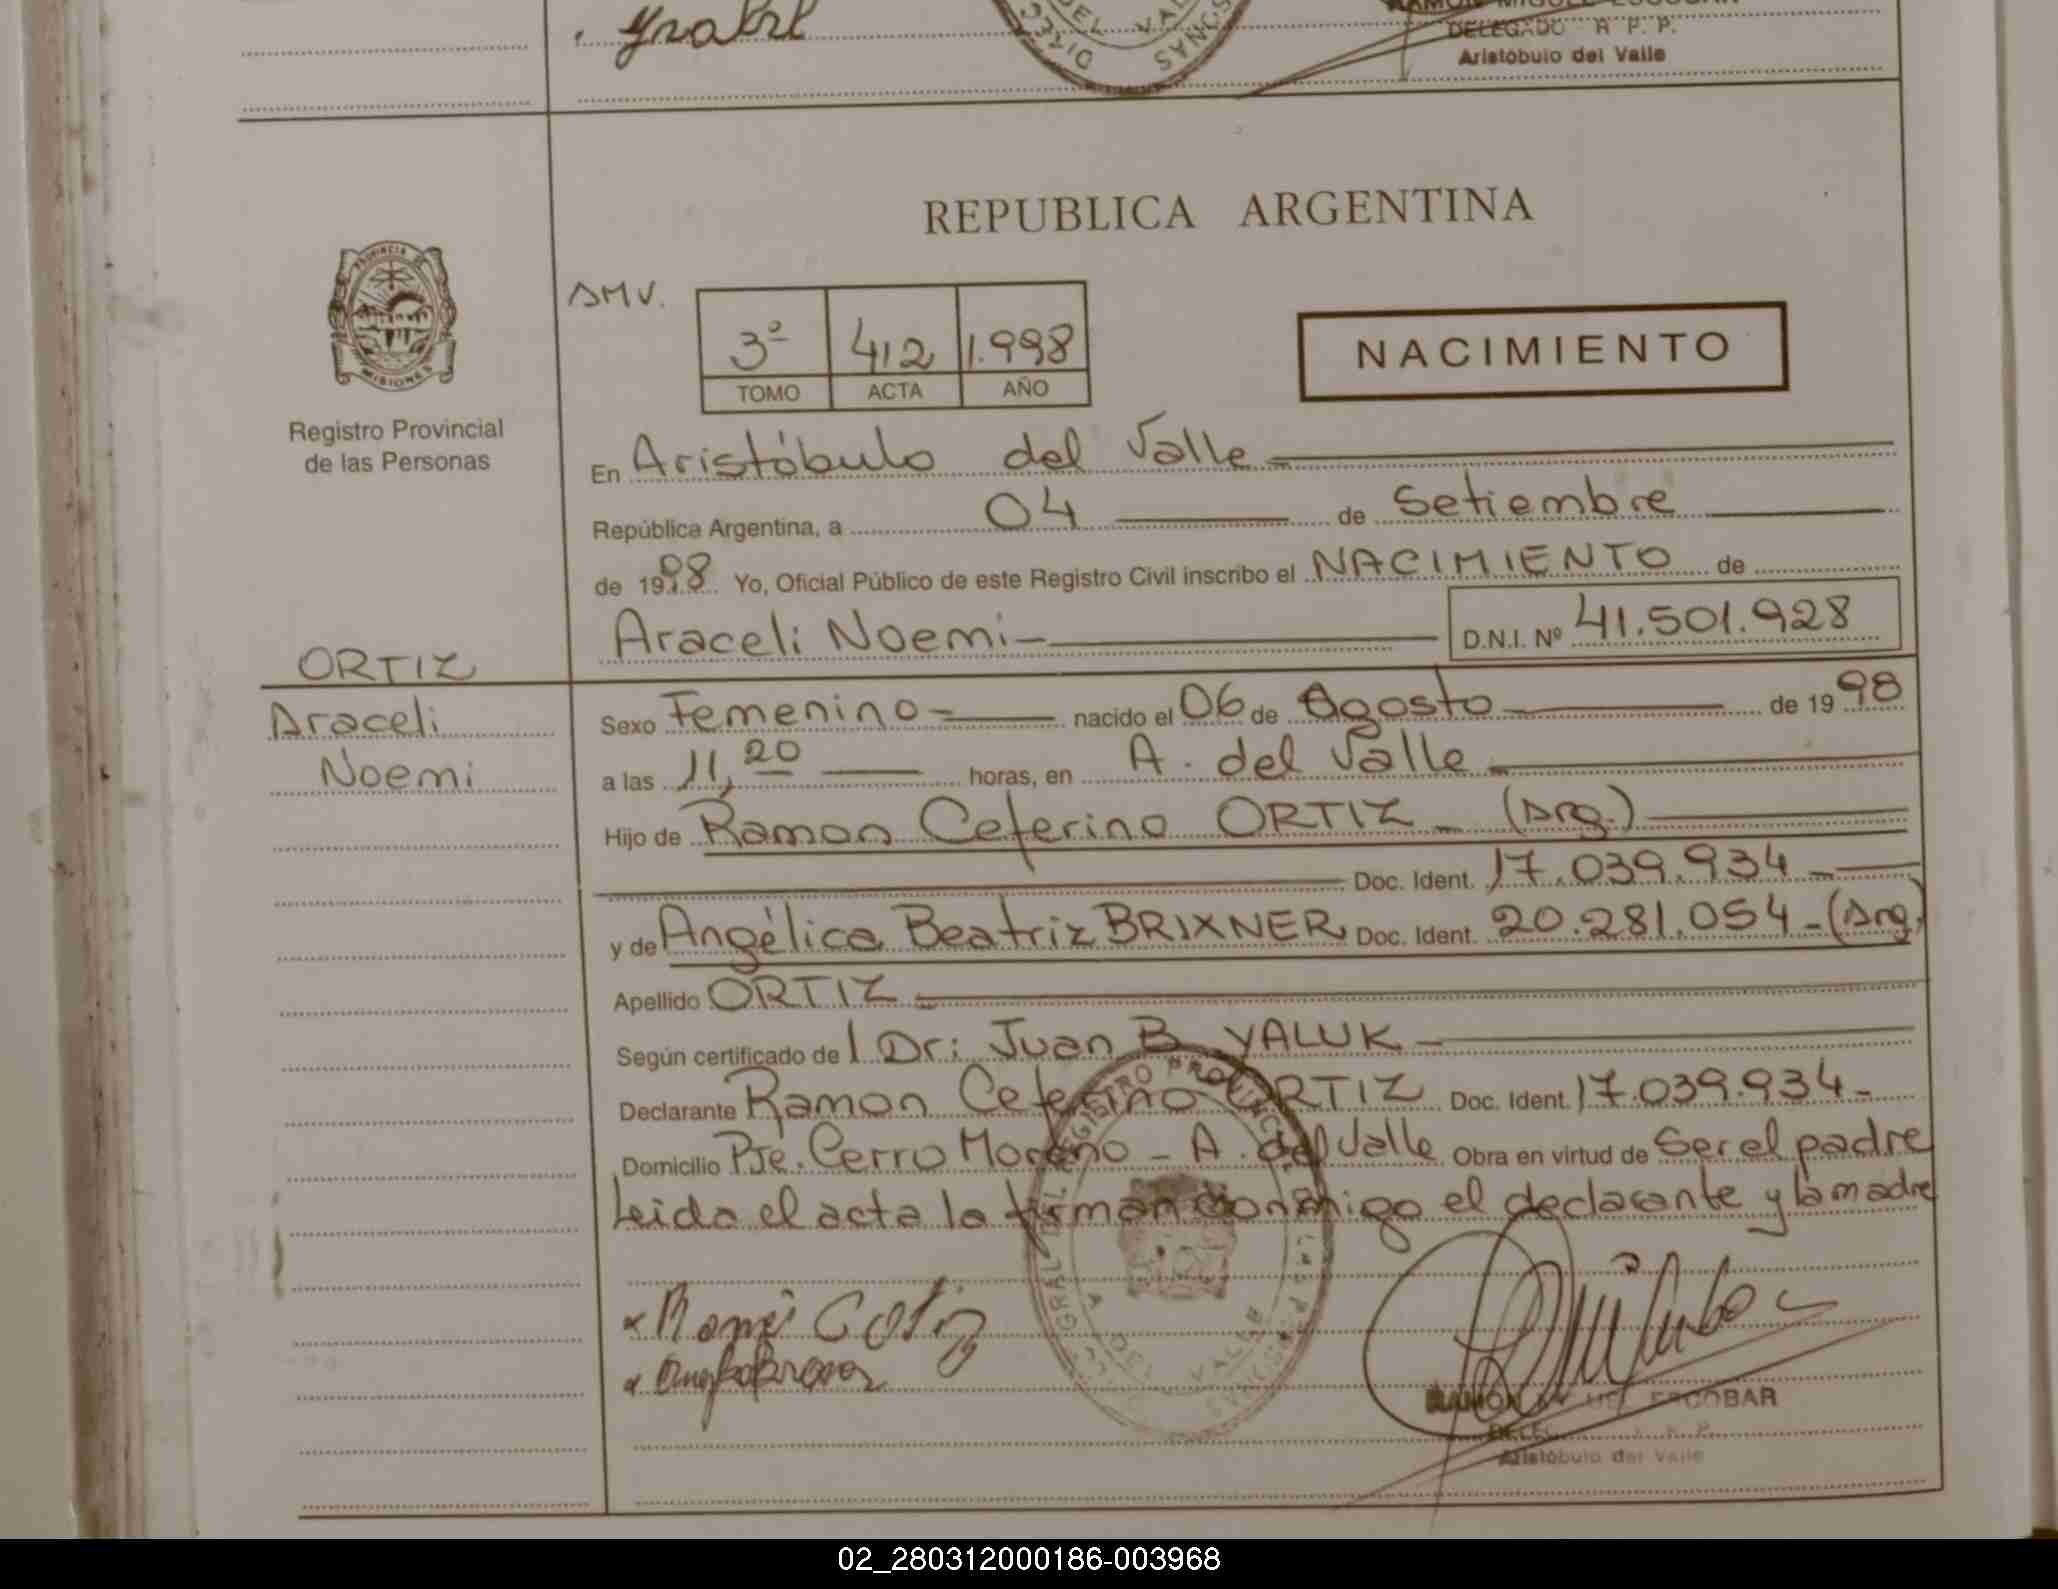 DIREC
DEL VAL
SONAS
DELEGADO R P. P.
Aristóbulo del Valle
REPUBLICA ARGENTINA
PROVINCIA DE
MISIONES
Registro Provincial
de las Personas
3º 412 1.998
TOMO ACTA AÑO
NACIMIENTO
En Aristóbulo del Valle
República Argentina, a 04 de Setiembre
de 1998 Yo, Oficial Público de este Registro Civil inscribo el NACIMIENTO de
Araceli Noemi- D.N.I. Nº 41.501.928
ORTIZ
Araceli
Noemi
Sexo Femenino- nacido el 06 de Agosto de 1998
a las 11,20 horas, en A. del Valle
Hijo de Ramon Ceferino ORTIZ - (Arg.)
Doc. Ident. 17.039.934-
y de Angélica Beatriz BRIXNER Doc. Ident. 20.281.054-(Arg.)
Apellido ORTIZ
Según certificado de l Dr: Juan B YALUK-
Declarante Ramon Ceferino ORTIZ Doc. Ident. 17.039.934-
Domicilio Pje. Cerro Moreno - A. del Valle Obra en virtud de Ser el padre
Leida el acta la firman conmigo el declarante y la madre
REGISTRO PROVINCIAL
A DEL VALLE
RAMON ESCOBAR
Aristóbulo del Valle
02_280312000186-003968